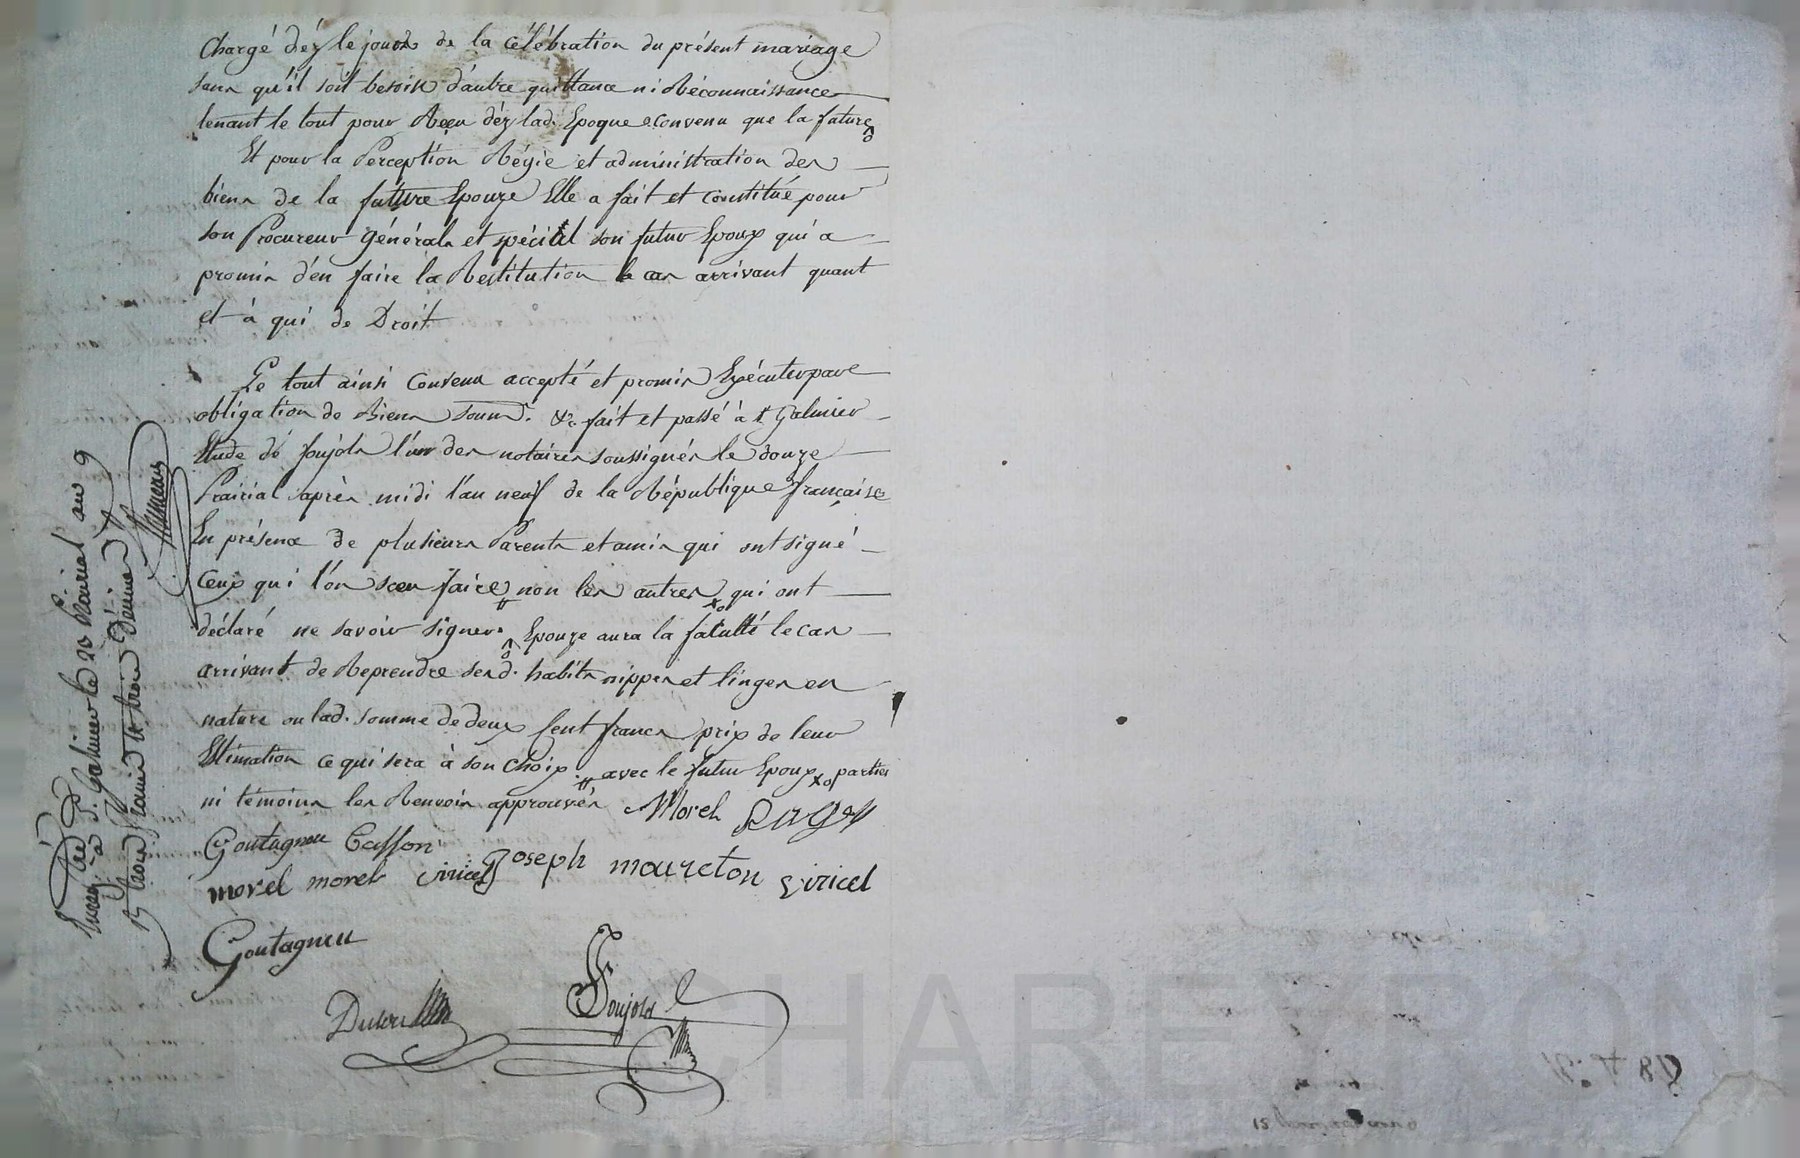 Chargé déz le jour de la célébration du présent mariage
sans qu'il soit besoin d'autre quittance ni Réconnaissance
tenant le tout pour Reçu déz lad. Epoque convenu que la future
Et pour la Perception Régie et administration des
biens de la future Epouze Elle a fait et constitué pour
son Procureur Général et spécial son futur Epoux qui a
promis d'en faire la Restitution le cas arrivant quant
et à qui de Droit
Le tout ainsi convenu accepté et promis Exécuter par
obligation de Biens soum. &c. fait et passé à St Galmier
Etude de Joujols l'un des notaires soussignés le douze
Prairial après midi l'an neuf de la République française
En présence de plusieurs Parents et amis qui ont signé
Ceux qui l'on sceu faire non les autres qui ont
déclaré ne savoir signer. Epouze aura la faculté le cas
arrivant de Reprendre sesd. habits nippes et linges en
nature ou lad. somme de deux Cent francs prix de leur
Estimation ce qui sera à son choix. avec le futur Epoux parties
ni témoins les Renvois approuvés Morel
Goutagneu Casson
morel morel viricel Joseph mourcton viricel
Goutagneu
Joujols
Enreg. tré à St. Galmier le 20 Prairial an 9
CHAREYRON